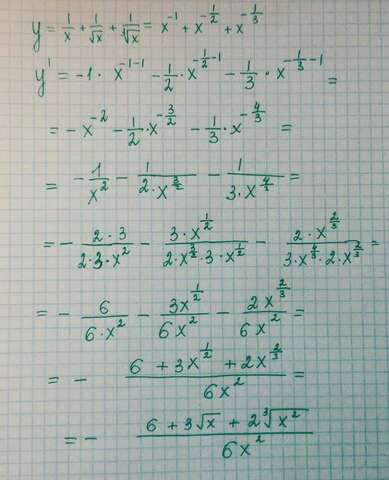 y = 1/x + 1/√x + 1/∛x = x^{-1} + x^{-1/2} + x^{-1/3}
y' = -1 · x^{-1-1} - 1/2 · x^{-1/2-1} - 1/3 · x^{-1/3-1} =
= - x^{-2} - 1/2 · x^{-3/2} - 1/3 · x^{-4/3} =
= - 1/x^2 - 1/(2 · x^{3/2}) - 1/(3 · x^{4/3}) =
= - (2 · 3)/(2 · 3 · x^2) - (3 · x^{1/2})/(2 · x^{3/2} · 3 · x^{1/2}) - (2 · x^{2/3})/(3 · x^{4/3} · 2 · x^{2/3}) =
= - 6/(6 · x^2) - (3x^{1/2})/(6x^2) - (2x^{2/3})/(6x^2) =
= - (6 + 3x^{1/2} + 2x^{2/3})/(6x^2) =
= - (6 + 3√x + 2∛(x^2))/(6x^2)